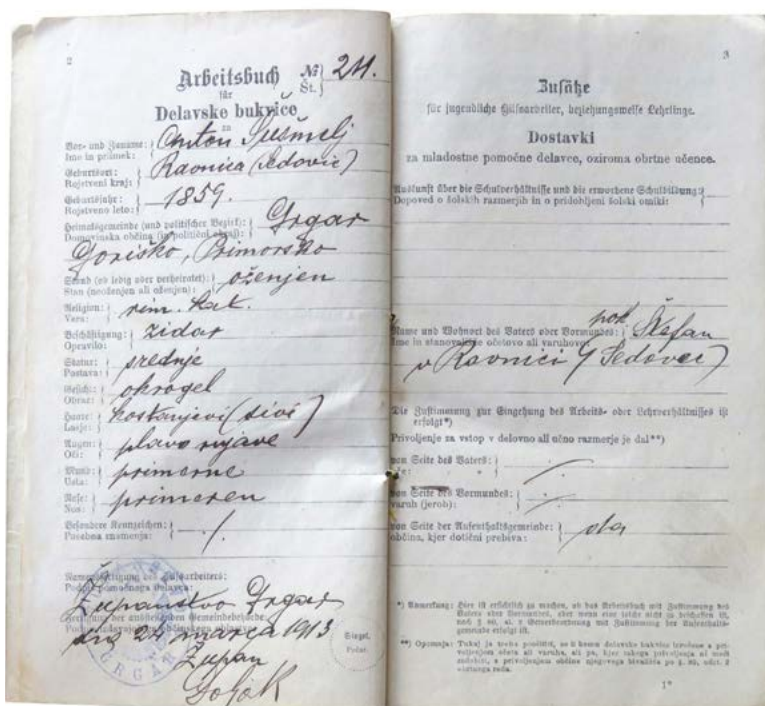 2
Arbeitsbuch № 211.
für Št.
Delavske bukvice
za
Vor- und Zuname: Anton Šušmelj
Ime in priimek:
Geburtsort: Ravnica (Sedovic)
Rojstveni kraj:
Geburtsjahr: 1859.
Rojstveno leto:
Heimatsgemeinde (und politischer Bezirk): Grgar
Domovinska občina (in politični okraj):
Goriško, Primorsko
Stand (ob ledig oder verheiratet): oženjen
Stan (neoženjen ali oženjen):
Religion: rim. kat.
Vera:
Beschäftigung: zidar
Opravilo:
Statur: srednje
Postava:
Gesicht: okrogel
Obraz:
Haare: kostanjevi (sivi)
Lasje:
Augen: plavo rujave
Oči:
Mund: primerne
Usta:
Nase: primeren
Nos:
Besondere Kennzeichen: /.
Posebna znamenja:
Namensfertigung des Hilfsarbeiters:
Podpis pomočnega delavca:
Županstvo Grgar
Fertigung der ausstellenden Gemeindebehörde:
dne 24 marca 1913
Siegel.
Pečat.
Župan
GRGAR
3
Zusätze
für jugendliche Hilfsarbeiter, beziehungsweise Lehrlinge.
Dostavki
za mladostne pomočne delavce, oziroma obrtne učence.
Auskunft über die Schulverhältnisse und die erworbene Schulbildung:
Dopoved o šolskih razmerjih in o pridobljeni šolski omiki:
Name und Wohnort des Vaters oder Vormundes: pok. Štefan
Ime in stanovališče očetovo ali varuhovo:
v Ravnici (Sedovec)
Die Zustimmung zur Eingehung des Arbeits- oder Lehrverhältnisses ist
erfolgt*)
Privoljenje za vstop v delovno ali učno razmerje je dal**)
von Seite des Vaters: /.
von Seite des Vormundes: /.
varuh (jerob):
von Seite der Aufenthaltsgemeinde: da
občina, kjer dotični prebiva:
*) Anmerkung: Hier ist ersichtlich zu machen, ob das Arbeitsbuch mit Zustimmung des
Vaters oder Vormundes, oder wenn eine solche nicht zu beschaffen ist,
nach § 80, al. 2 Gewerbeordnung mit Zustimmung der Aufenthalts-
gemeinde erfolgt ist.
**) Opomnja: Tukaj je treba povedati, se li komu delavske bukvice izročene s pri-
voljenjem očeta ali varuha, ali pa, kjer takega privoljenja ni moči
zadobiti, s privoljenjem občine njegovega bivališča po §. 80, odst. 2
obrtnega reda.
1*